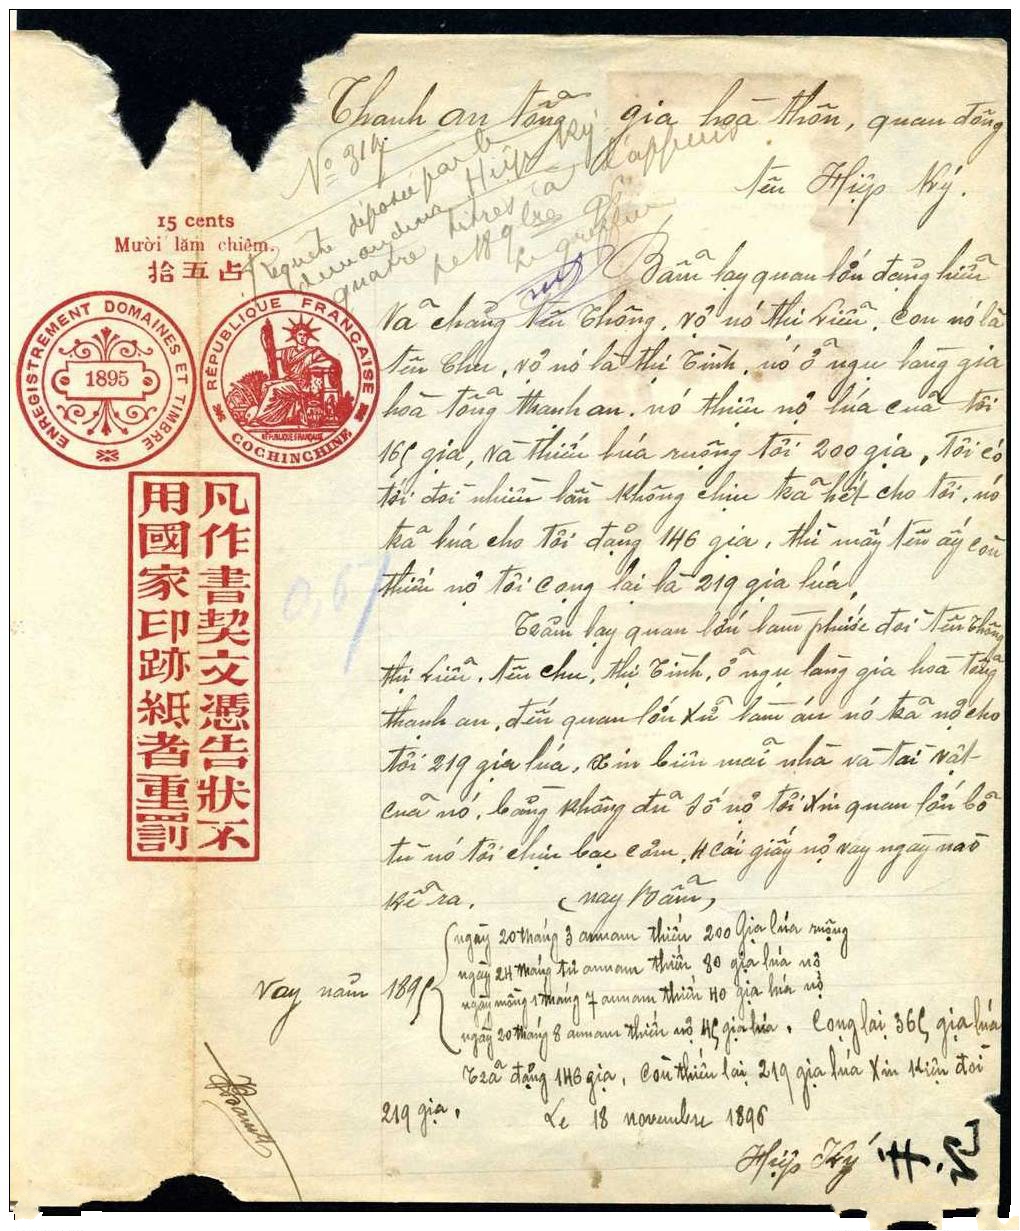 Thanh an tổng gia hoà thôn, quan đông
tên Hiệp Ký.
No 317
Requête déposée par le
demandeur Hiệp Ký
quatre titres à l'appui
Le greffier
15 cents
Mười lăm chiêm.
拾五占
ENREGISTREMENT DOMAINES ET TIMBRE
1895
RÉPUBLIQUE FRANÇAISE
RÉPUBLIQUE FRANÇAISE
COCHINCHINE
凡作書契文憑告狀不
用國家印跡紙者重罰
0,67
Bẩm lạy quan lớn đặng hiểu
Vã chăng tên Thông, vợ nó thị Liễu, con nó là
tên Chu, vợ nó là thị Tình, nó ở ngụ làng gia
hoà tổng thanh an. nó thiếu nợ lúa cuả tôi
165 gịa, và thiếu lúa ruộng tôi 200 gịa, tôi có
tới đòi nhiều lần không chịu trả hết cho tôi, nó
trả lúa cho tôi đặng 146 gịa, thì mấy tên ấy còn
thiếu nợ tôi cọng lại là 219 gịa lúa,
Trăm lạy quan lớn làm phước đòi tên Thông
thị Liễu, tên chu, thị Tình, ở ngụ làng gia hoà tổng
thạnh an, đến quan lớn xử làm án nó trả nợ cho
tôi 219 gịa lúa, xin biên mãi nhà và tài vật
cuả nó, bằng không đủ số nợ tôi xin quan lớn bỏ
tù nó tôi chịu bạc cơm, 4 cái giấy nợ vay ngày nào
kể ra, (nay Bẩm,
Vay năm 1895
ngày 20 tháng 3 annam thiếu 200 Gịa lúa ruộng
ngày 24 tháng tư annam thiếu 80 gịa lúa nợ
ngày mồng 1 tháng 7 annam thiếu 40 gịa lúa nợ
ngày 20 tháng 8 annam thiếu nợ 45 gịa lúa. Cọng lại 365 gịa lúa
Trả đặng 146 gịa, còn thiếu lại 219 gịa lúa xin kiện đòi
219 gịa.
Le 18 novembre 1896
Hiệp Ký